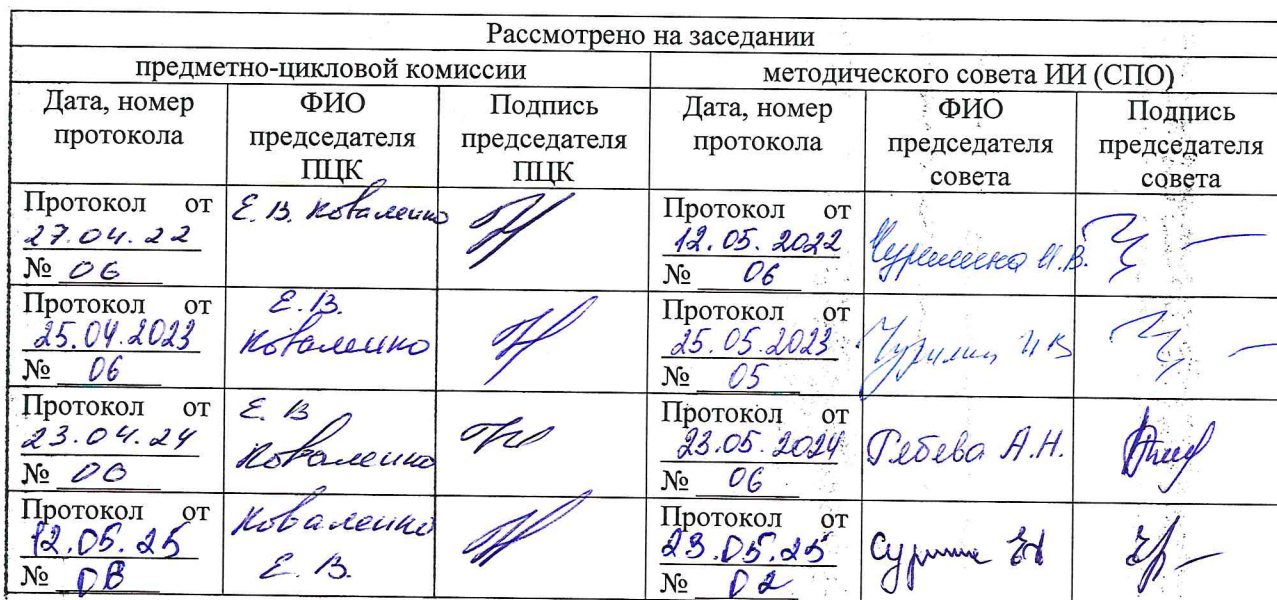 Рассмотрено на заседании
предметно-цикловой комиссии
методического совета ИИ (СПО)
Дата, номер
протокола
ФИО
председателя
ПЦК
Подпись
председателя
ПЦК
Дата, номер
протокола
ФИО
председателя
совета
Подпись
председателя
совета
Протокол от
27.04.22
№ 06
Е. В. Коваленко
Протокол от
12.05.2022
№ 06
Чурилина И.В.
Протокол от
25.04.2023
№ 06
Е. В.
Коваленко
Протокол от
25.05.2023
№ 05
Протокол от
23.04.24
№ 06
Е. В
Коваленко
Протокол от
23.05.2024
№ 06
А.Н.
Протокол от
12.05.25
№
Коваленко
Е. В.
Протокол от
23.05.25
№ 02